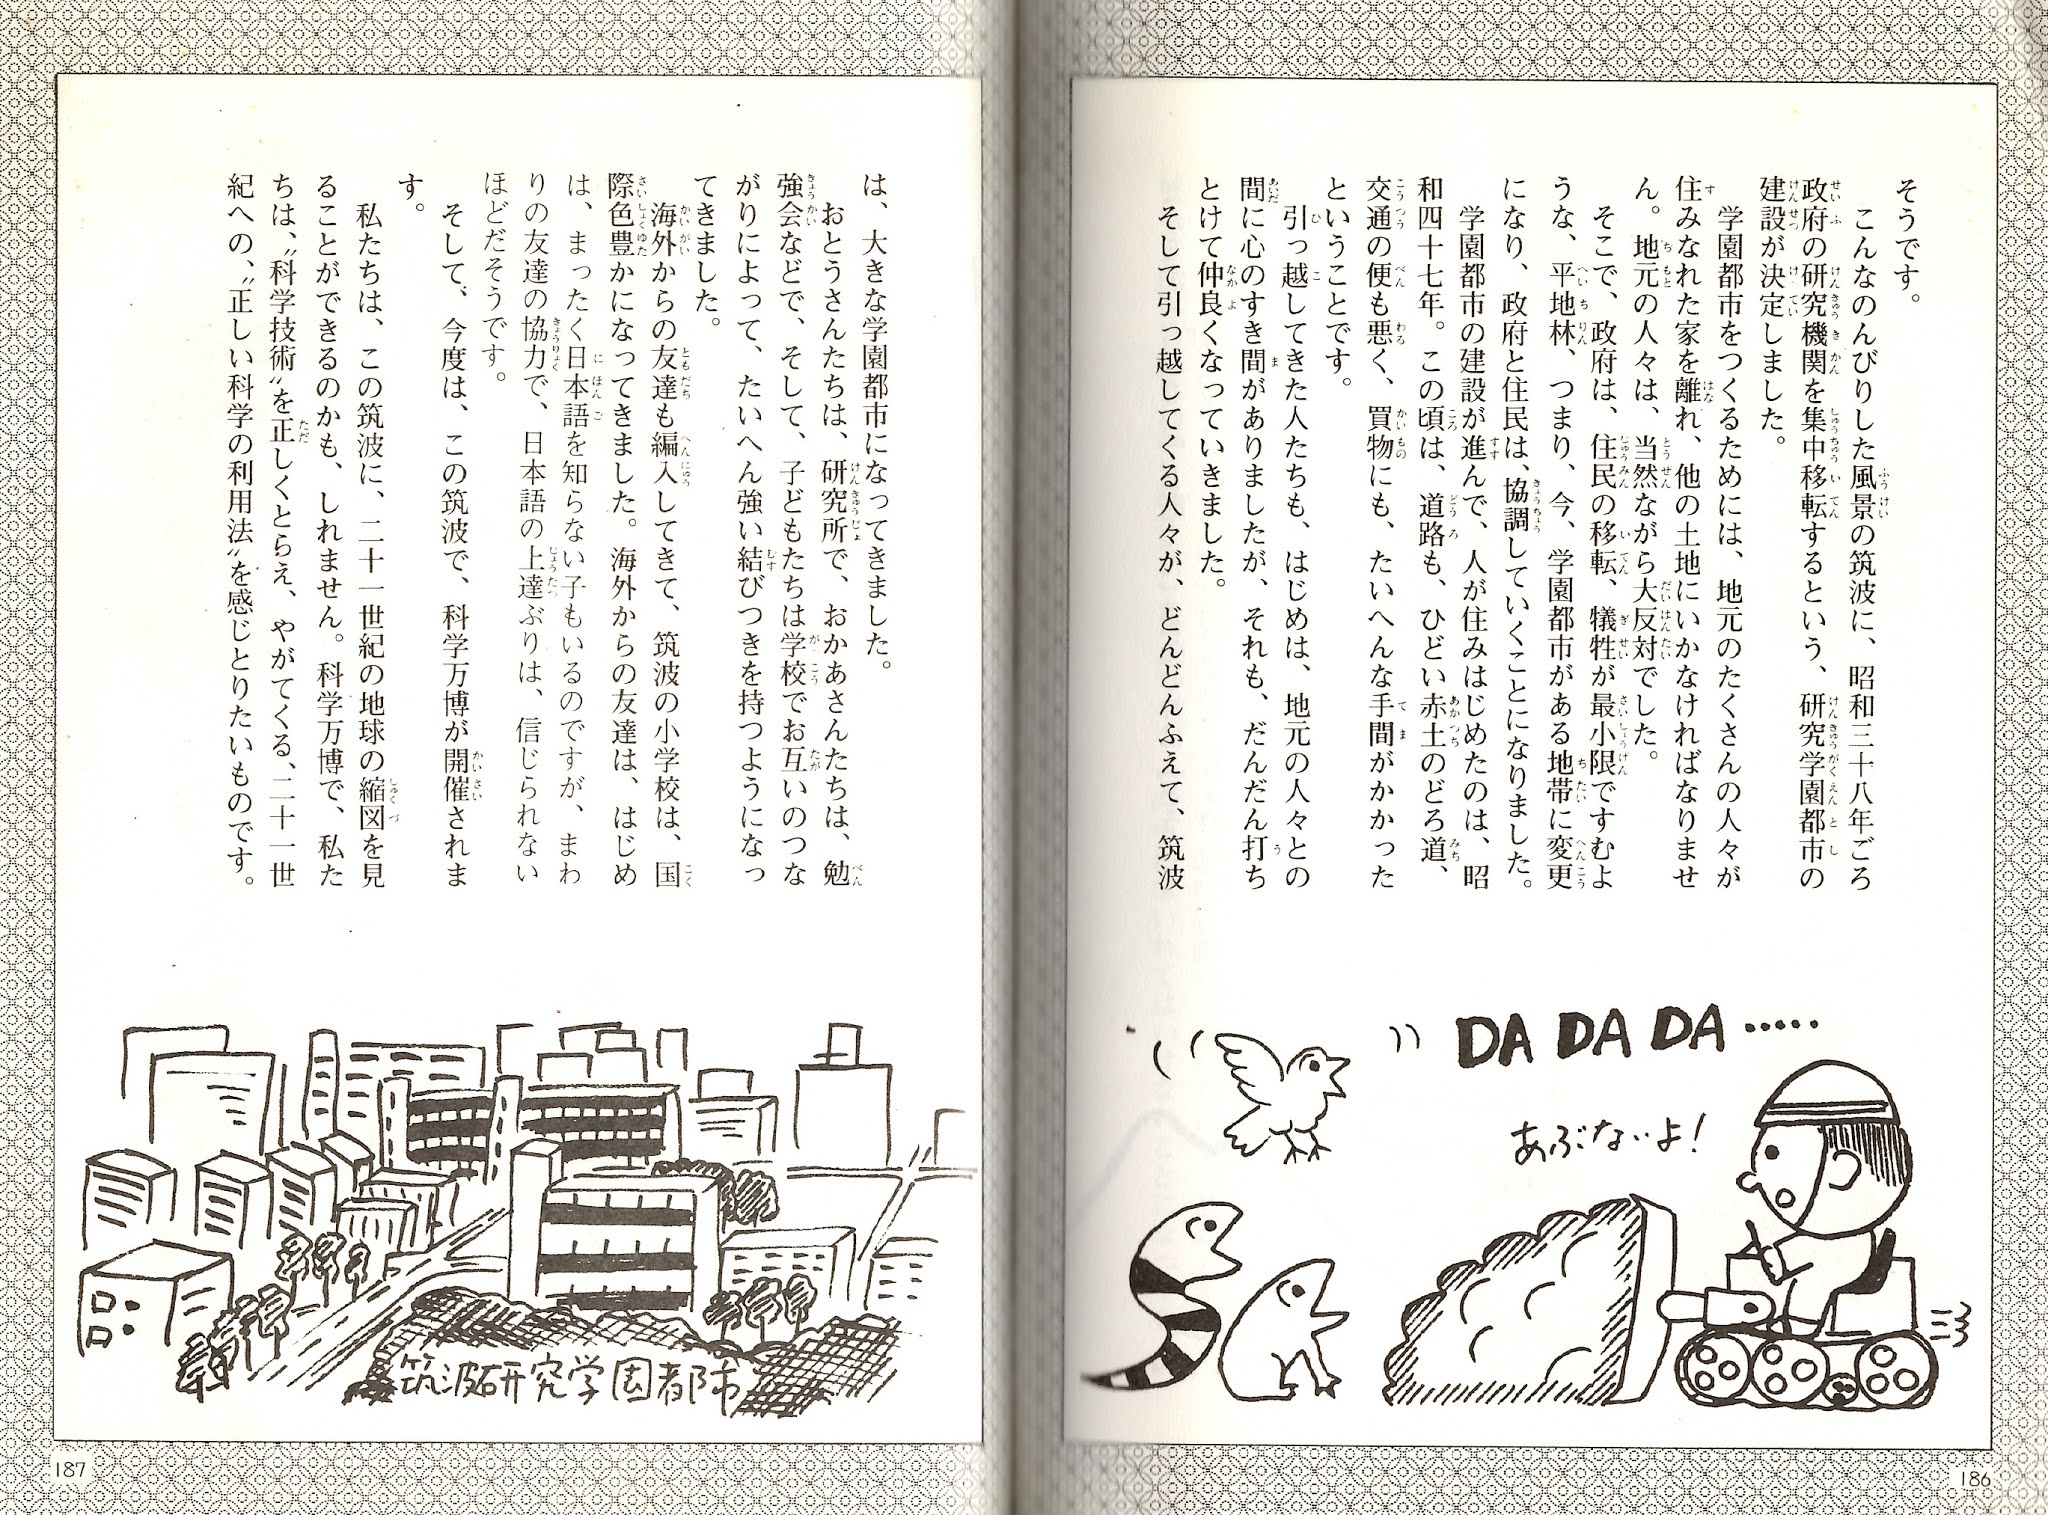 そうです。
　こんなのんびりした風景の筑波に、昭和三十八年ごろ
政府の研究機関を集中移転するという、研究学園都市の
建設が決定しました。
　学園都市をつくるためには、地元のたくさんの人々が
住みなれた家を離れ、他の土地にいかなければなりませ
ん。地元の人々は、当然ながら大反対でした。
　そこで、政府は、住民の移転、犠牲が最小限ですむよ
うな、平地林、つまり、今、学園都市がある地帯に変更
になり、政府と住民は、協調していくことになりました。
　学園都市の建設が進んで、人が住みはじめたのは、昭
和四十七年。この頃は、道路も、ひどい赤土のどろ道、
交通の便も悪く、買物にも、たいへんな手間がかかった
ということです。
　引っ越してきた人たちも、はじめは、地元の人々との
間に心のすき間がありましたが、それも、だんだん打ち
とけて仲良くなっていきました。
　そして引っ越してくる人々が、どんどんふえて、筑波
DA DA DA ‥‥‥
あぶないよ！
186
は、大きな学園都市になってきました。
　おとうさんたちは、研究所で、おかあさんたちは、勉
強会などで、そして、子どもたちは学校でお互いのつな
がりによって、たいへん強い結びつきを持つようになっ
てきました。
　海外からの友達も編入してきて、筑波の小学校は、国
際色豊かになってきました。海外からの友達は、はじめ
は、まったく日本語を知らない子もいるのですが、まわ
りの友達の協力で、日本語の上達ぶりは、信じられない
ほどだそうです。
　そして、今度は、この筑波で、科学万博が開催されま
す。
　私たちは、この筑波に、二十一世紀の地球の縮図を見
ることができるのかも、しれません。科学万博で、私た
ちは、〝科学技術〟を正しくとらえ、やがてくる、二十一世
紀への、〝正しい科学の利用法〟を感じとりたいものです。
筑波研究学園都市
187